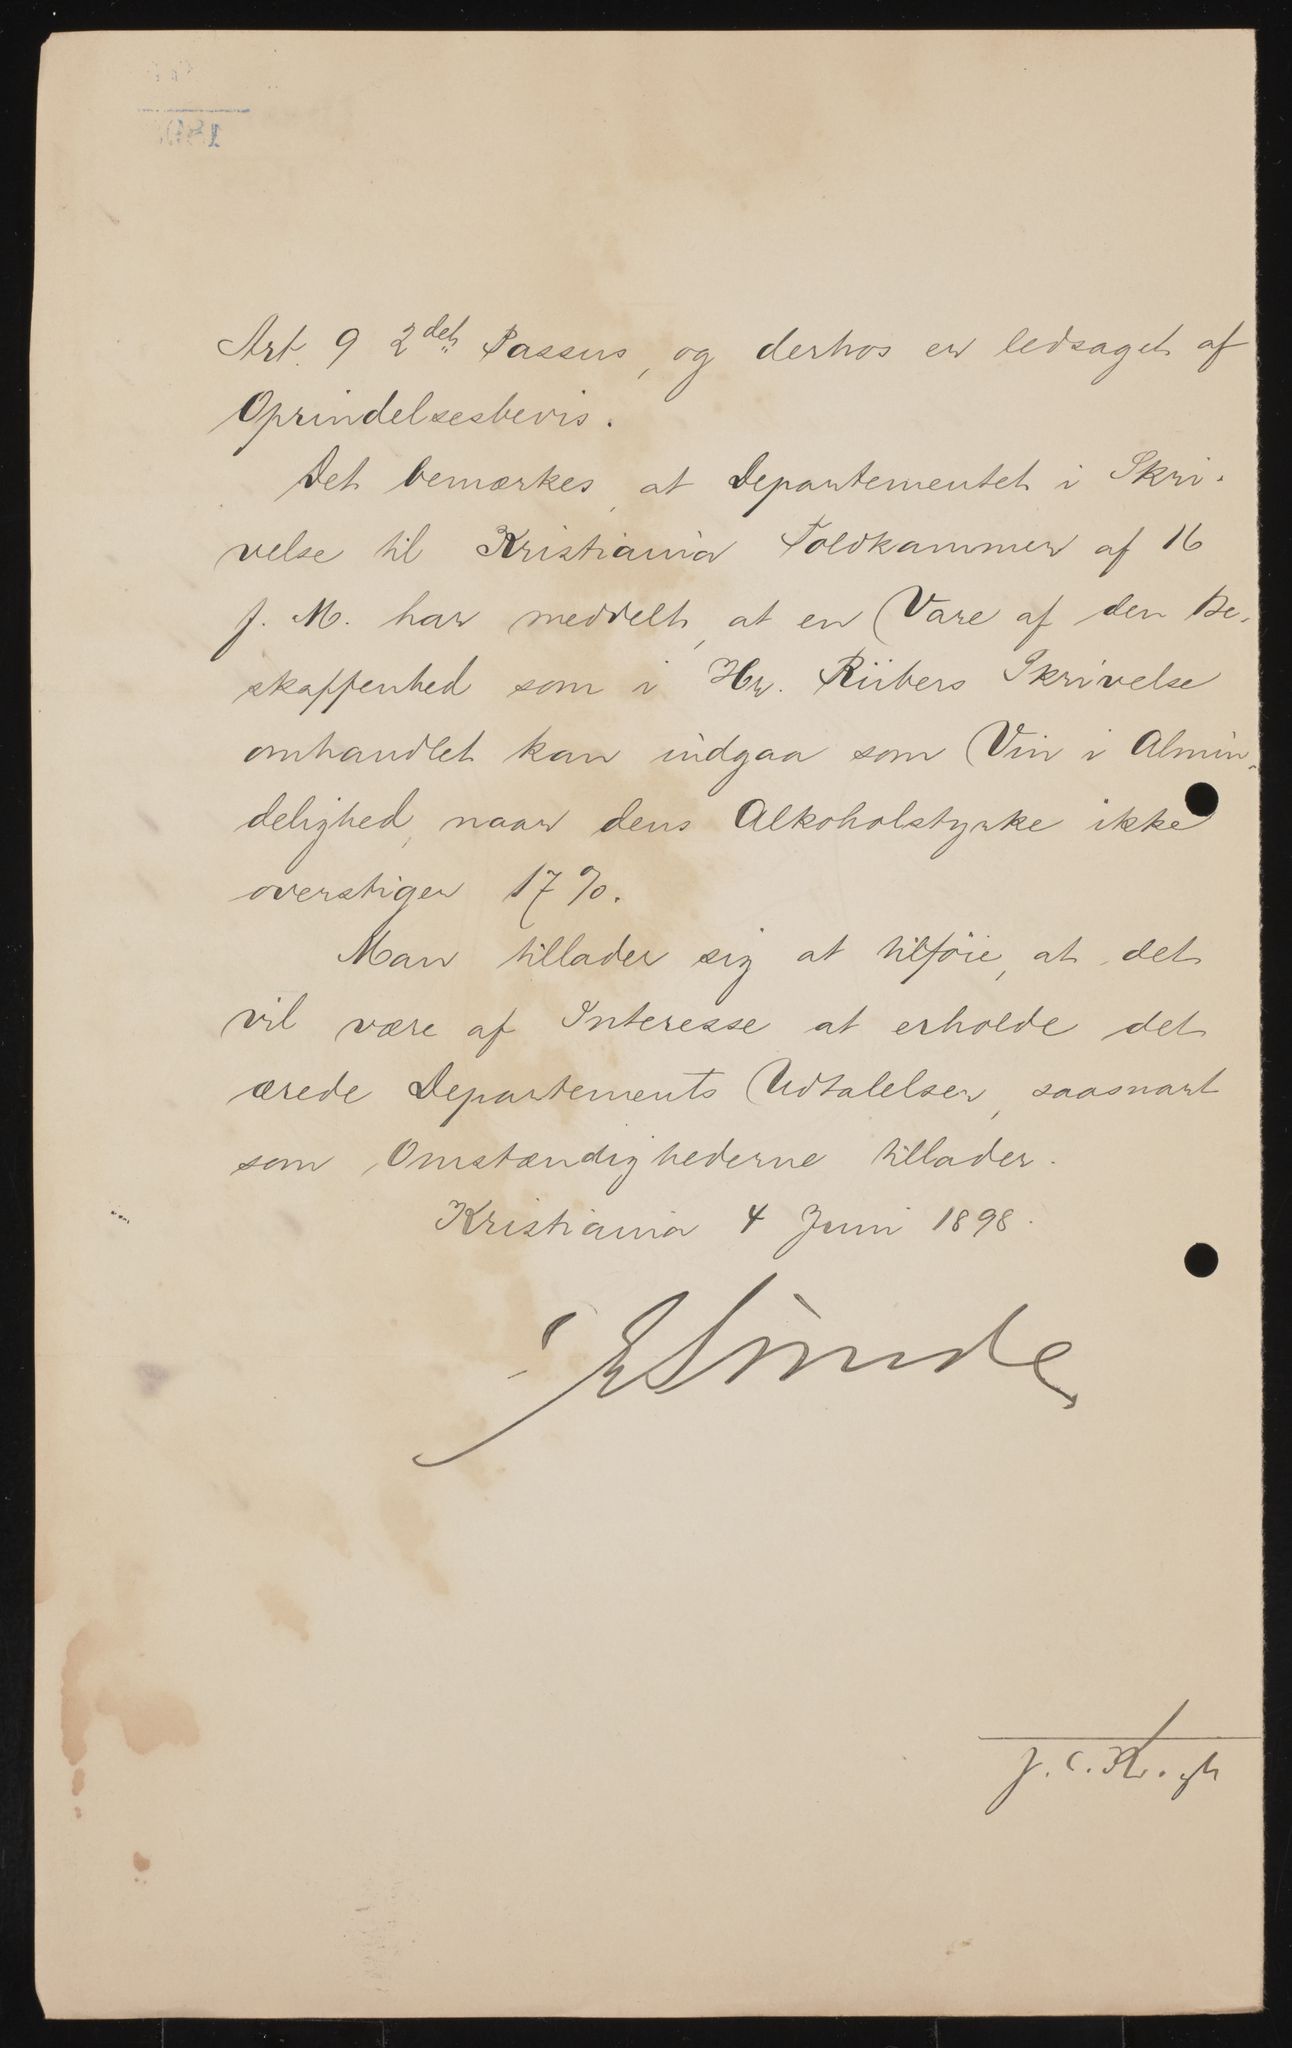 Art. 9 2det Passus, og derhos er ledsaget af
Oprindelsesbevis.
Det bemærkes, at Departementet i Skri-
velse til Kristiania Toldkammer af 16
f. M. har meddelt, at en Vare af den Be-
skaffenhed som i Hr. Riibers Skrivelse
omhandlet kan indgaa som Vin i Almin-
delighed, naar dens Alkoholstyrke ikke
overstiger 17%.
Man tillader sig at tilföie, at det
vil være af Interesse at erholde det
ærede Departements Udtalelser, saasnart
som Omstændighederne tillader.
Kristiania 4 Juni 1898.
E Sunde
J. C. Krogh